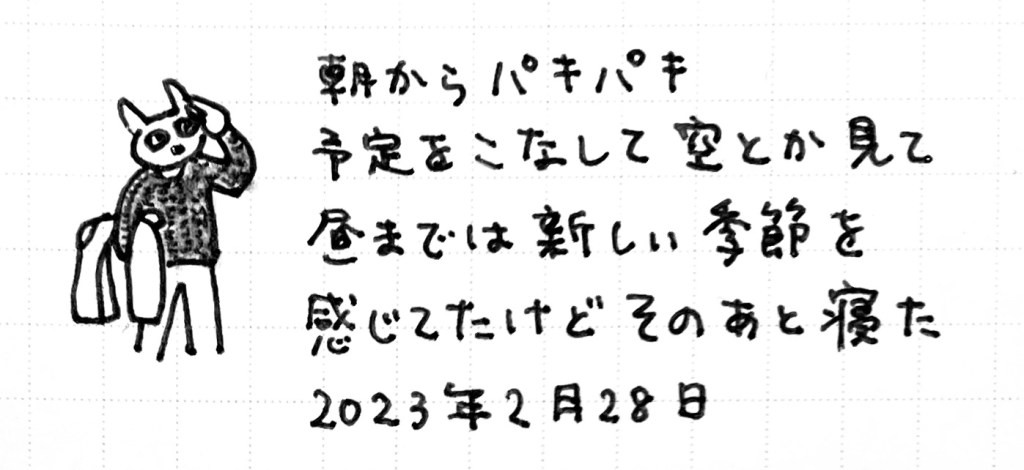 朝からパキパキ
予定をこなして空とか見て
昼までは新しい季節を
感じてたけどそのあと寝た
2023年2月28日